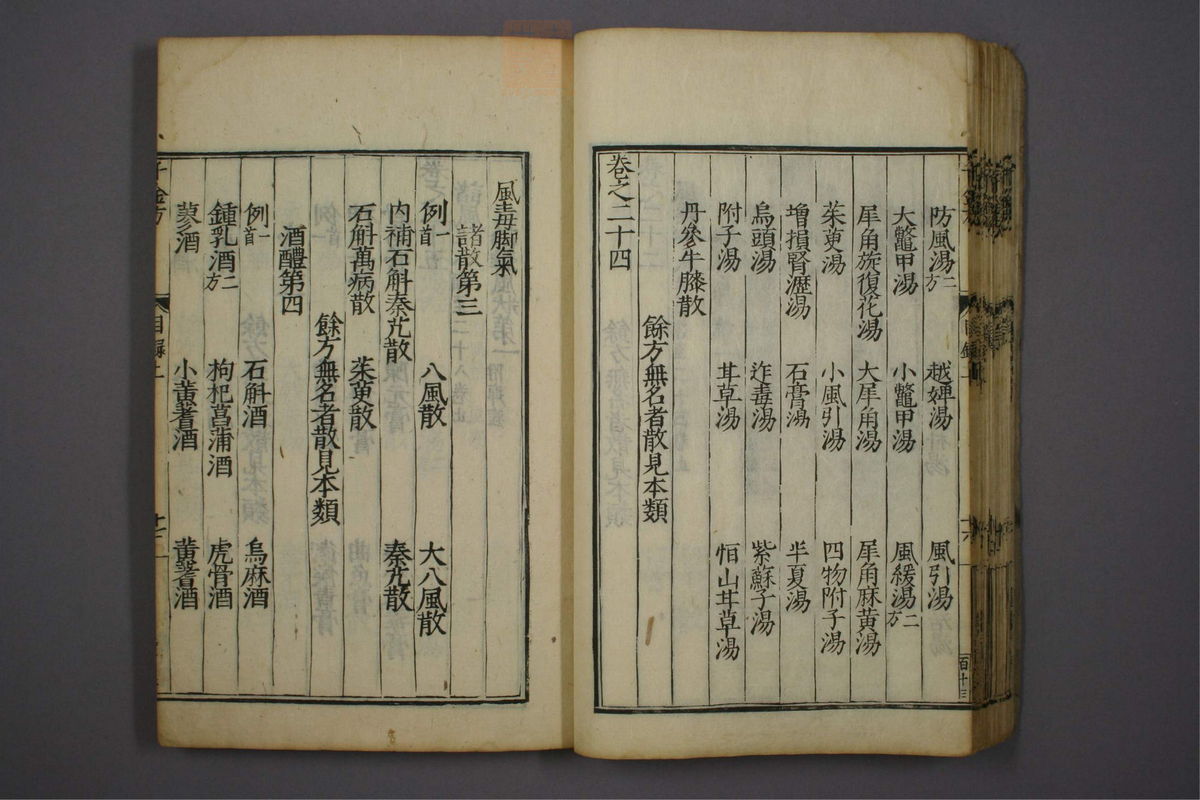 防風湯二方 越婢湯 風引湯
大鼈甲湯 小鼈甲湯 風緩湯二方
犀角旋復花湯 大犀角湯 犀角麻黄湯
茱萸湯 小風引湯 四物附子湯
増損腎瀝湯 石膏湯 半夏湯
烏頭湯 迮毒湯 紫蘇子湯
附子湯 甘草湯 恒山甘草湯
丹參牛膝散
餘方無名者散見本類
卷之二十四
風毒脚氣
諸散第三
例一首 八風散 大八風散
内補石斛秦艽散 秦艽散
石斛萬病散 茱萸散
餘方無名者散見本類
酒醴第四
例一首 石斛酒 烏麻酒
鍾乳酒二方 枸杞菖蒲酒 虎骨酒
蓼酒 小黄耆酒 黄耆酒
百十三